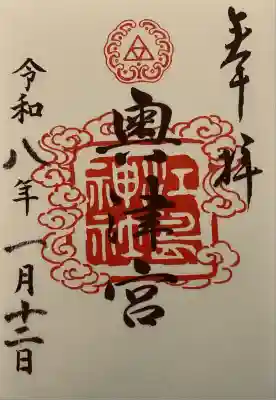 奉拝
奥津宮
江島神社
令和八年一月十二日